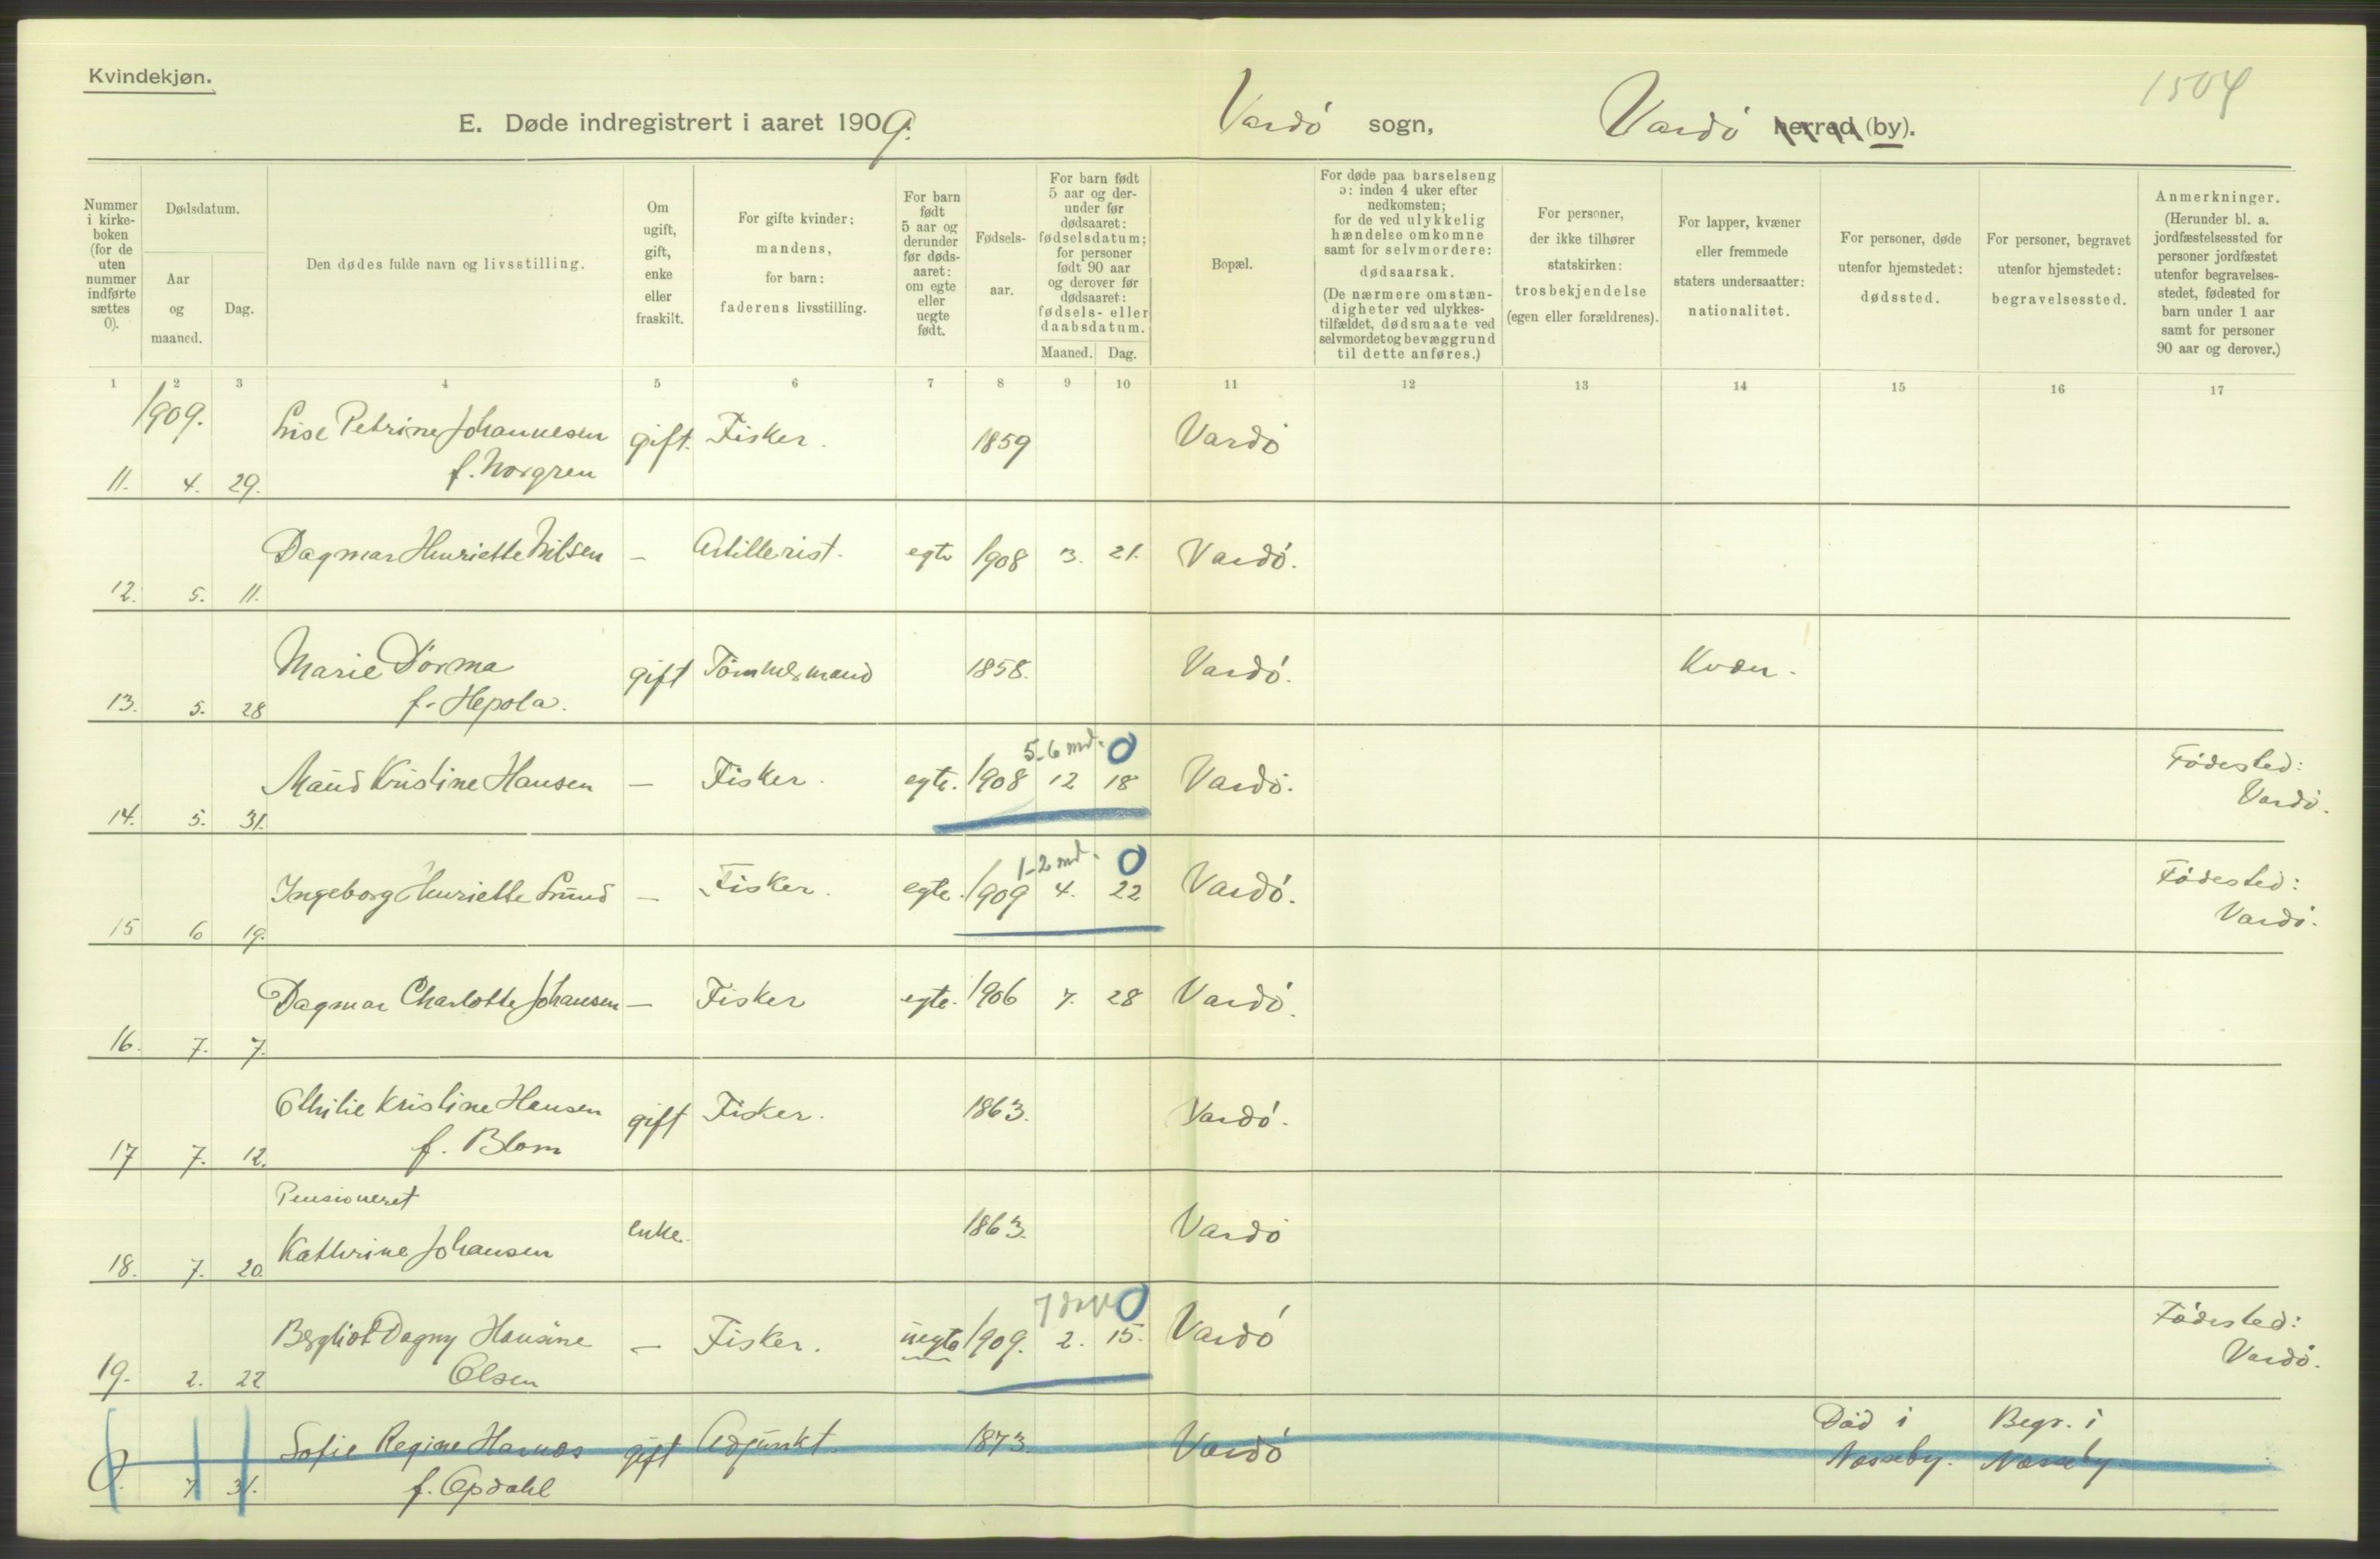 Kvindekjøn.
1504
E. Døde indregistrert i aaret 1909. Vardö sogn, Vardö herred (by).
Nummer i kirke-boken (for de uten nummer indførte sættes 0).
Dødsdatum.
Aar og maaned.
Dag.
Den dødes fulde navn og livsstilling.
Om ugift, gift, enke eller fraskilt.
For gifte kvinder: mandens, for barn: faderens livsstilling.
For barn født 5 aar og derunder før døds-aaret: om egte eller uegte født.
Fødsels-aar.
For barn født 5 aar og der-under før dødsaaret: fødselsdatum; for personer født 90 aar og derover før dødsaaret: fødsels- eller daabsdatum.
Maaned. Dag.
Bopæl.
For døde paa barselseng ɔ: inden 4 uker efter nedkomsten; for de ved ulykkelig hændelse omkomne samt for selvmordere: dødsaarsak. (De nærmere omstæn-digheter ved ulykkes-tilfældet, dødsmaate ved selvmordet og bevæggrund til dette anføres.)
For personer, der ikke tilhører statskirken: trosbekjendelse (egen eller forældrenes).
For lapper, kvæner eller fremmede staters undersaatter: nationalitet.
For personer, døde utenfor hjemstedet: dødssted.
For personer, begravet utenfor hjemstedet: begravelsessted.
Anmerkninger. (Herunder bl. a. jordfæstelsessted for personer jordfæstet utenfor begravelses-stedet, fødested for barn under 1 aar samt for personer 90 aar og derover.)
1 2 3 4 5 6 7 8 9 10 11 12 13 14 15 16 17
1909.
Lise Petrine Johannesen gift. Fisker. 1859 Vardö
11. 4. 29. f. Norgren
Dagmar Henriette Nilsen — Artillerist. egte 1908 3. 21. Vardö.
12. 5. 11.
Marie Dorma gift Tömmermand 1858. Vardö. Kvæn.
13. 5. 28 f. Hepola.
5-6 md. 0
Maud Kristine Hansen — Fisker. egte. 1908 12 18 Vardö. Födested:
14. 5. 31. Vardö.
1-2 md. 0
Ingeborg Henriette Lund — Fisker. egte. 1909 4. 22 Vardö. Födested:
15 6 19. Vardö.
Dagmar Charlotte Johansen — Fisker egte. 1906 7. 28 Vardö.
16. 7. 7.
Othilie Kristine Hansen gift Fisker. 1863. Vardö.
17 7. 12. f. Blom
Pensioneret
enke. 1863. Vardö
18. 7. 20. Kathrine Johansen
7 dage 0
Bergliot Dagny Hansine — Fisker. uegte 1909. 2. 15. Vardö Födested:
19. 2. 22 Olsen Vardö.
Död i Begr. i
Sofie Regine Harnæs gift Adjunkt. 1873. Vardö Næsseby. Næsseby
0. 7 31. f. Opdahl